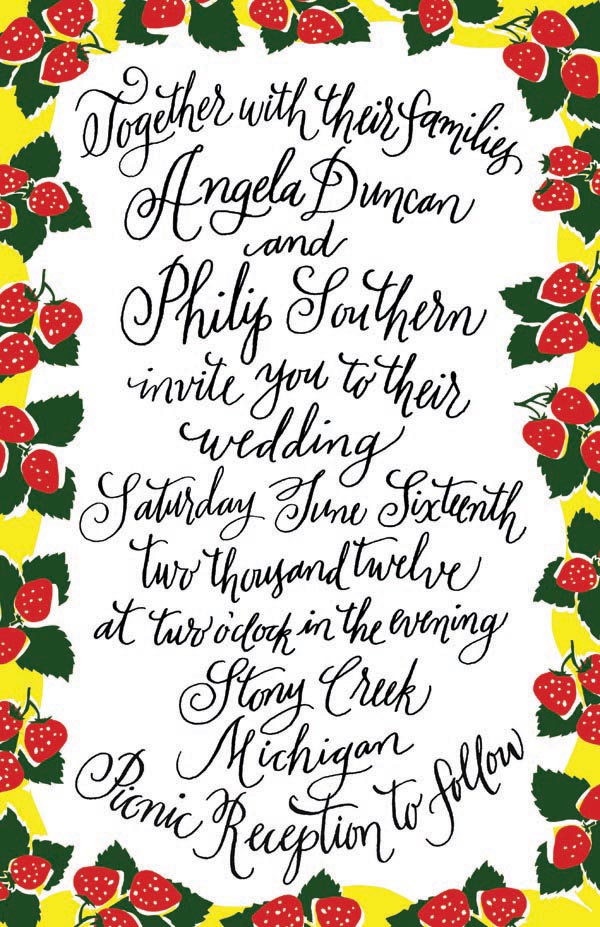 Together with their families
Angela Duncan
and
Philip Southern
invite you to their
wedding
Saturday June Sixteenth
two thousand twelve
at two o'clock in the evening
Stony Creek
Michigan
Picnic Reception to follow